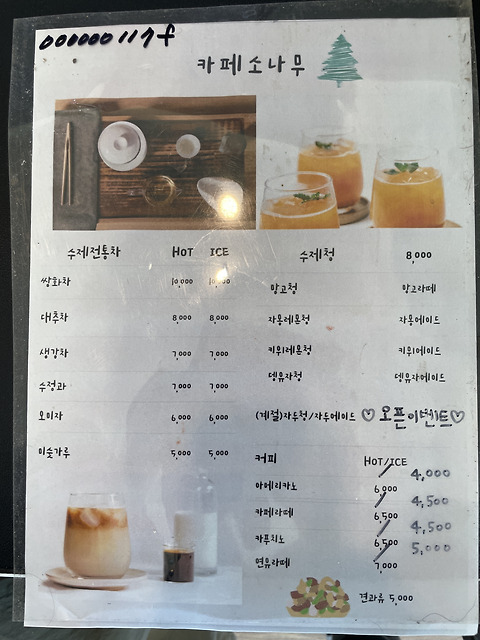 000000117f
카페소나무
수제전통차 HOT ICE
쌍화차 10,000 10,000
대추차 8,000 8,000
생강차 7,000 7,000
수정과 7,000 7,000
오미자 6,000 6,000
미숫가루 5,000 5,000
수제청 8,000
망고청 망고라떼
자몽레몬청 자몽에이드
키위레몬청 키위에이드
댕유자청 댕유자에이드
(계절)자두청/자두에이드 ♡오픈이벤트♡
커피 HOT/ICE
아메리카노 6,000 4,000
카페라떼 6,500 4,500
카푸치노 6,500 4,500
연유라떼 7,000 5,000
견과류 5,000